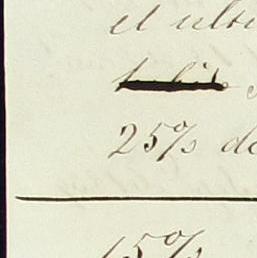 et ulti
25% de
15%